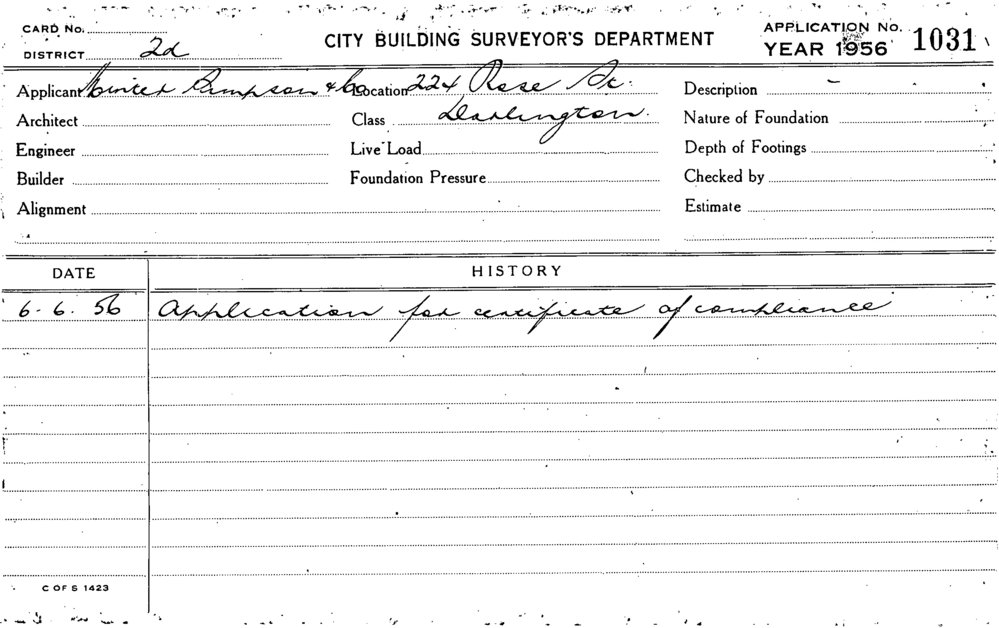 CARD No.
DISTRICT 2d
CITY BUILDING SURVEYOR'S DEPARTMENT
APPLICATION No.
YEAR 1956 1031
Applicant Minter Simpson & Co Location 224 Rose St.
Darlington.
Description -
Architect
Class
Nature of Foundation
Engineer
Live Load
Depth of Footings
Builder
Foundation Pressure
Checked by
Alignment
Estimate
DATE HISTORY
6. 6. 56 Application for certificate of compliance
C OF S 1423